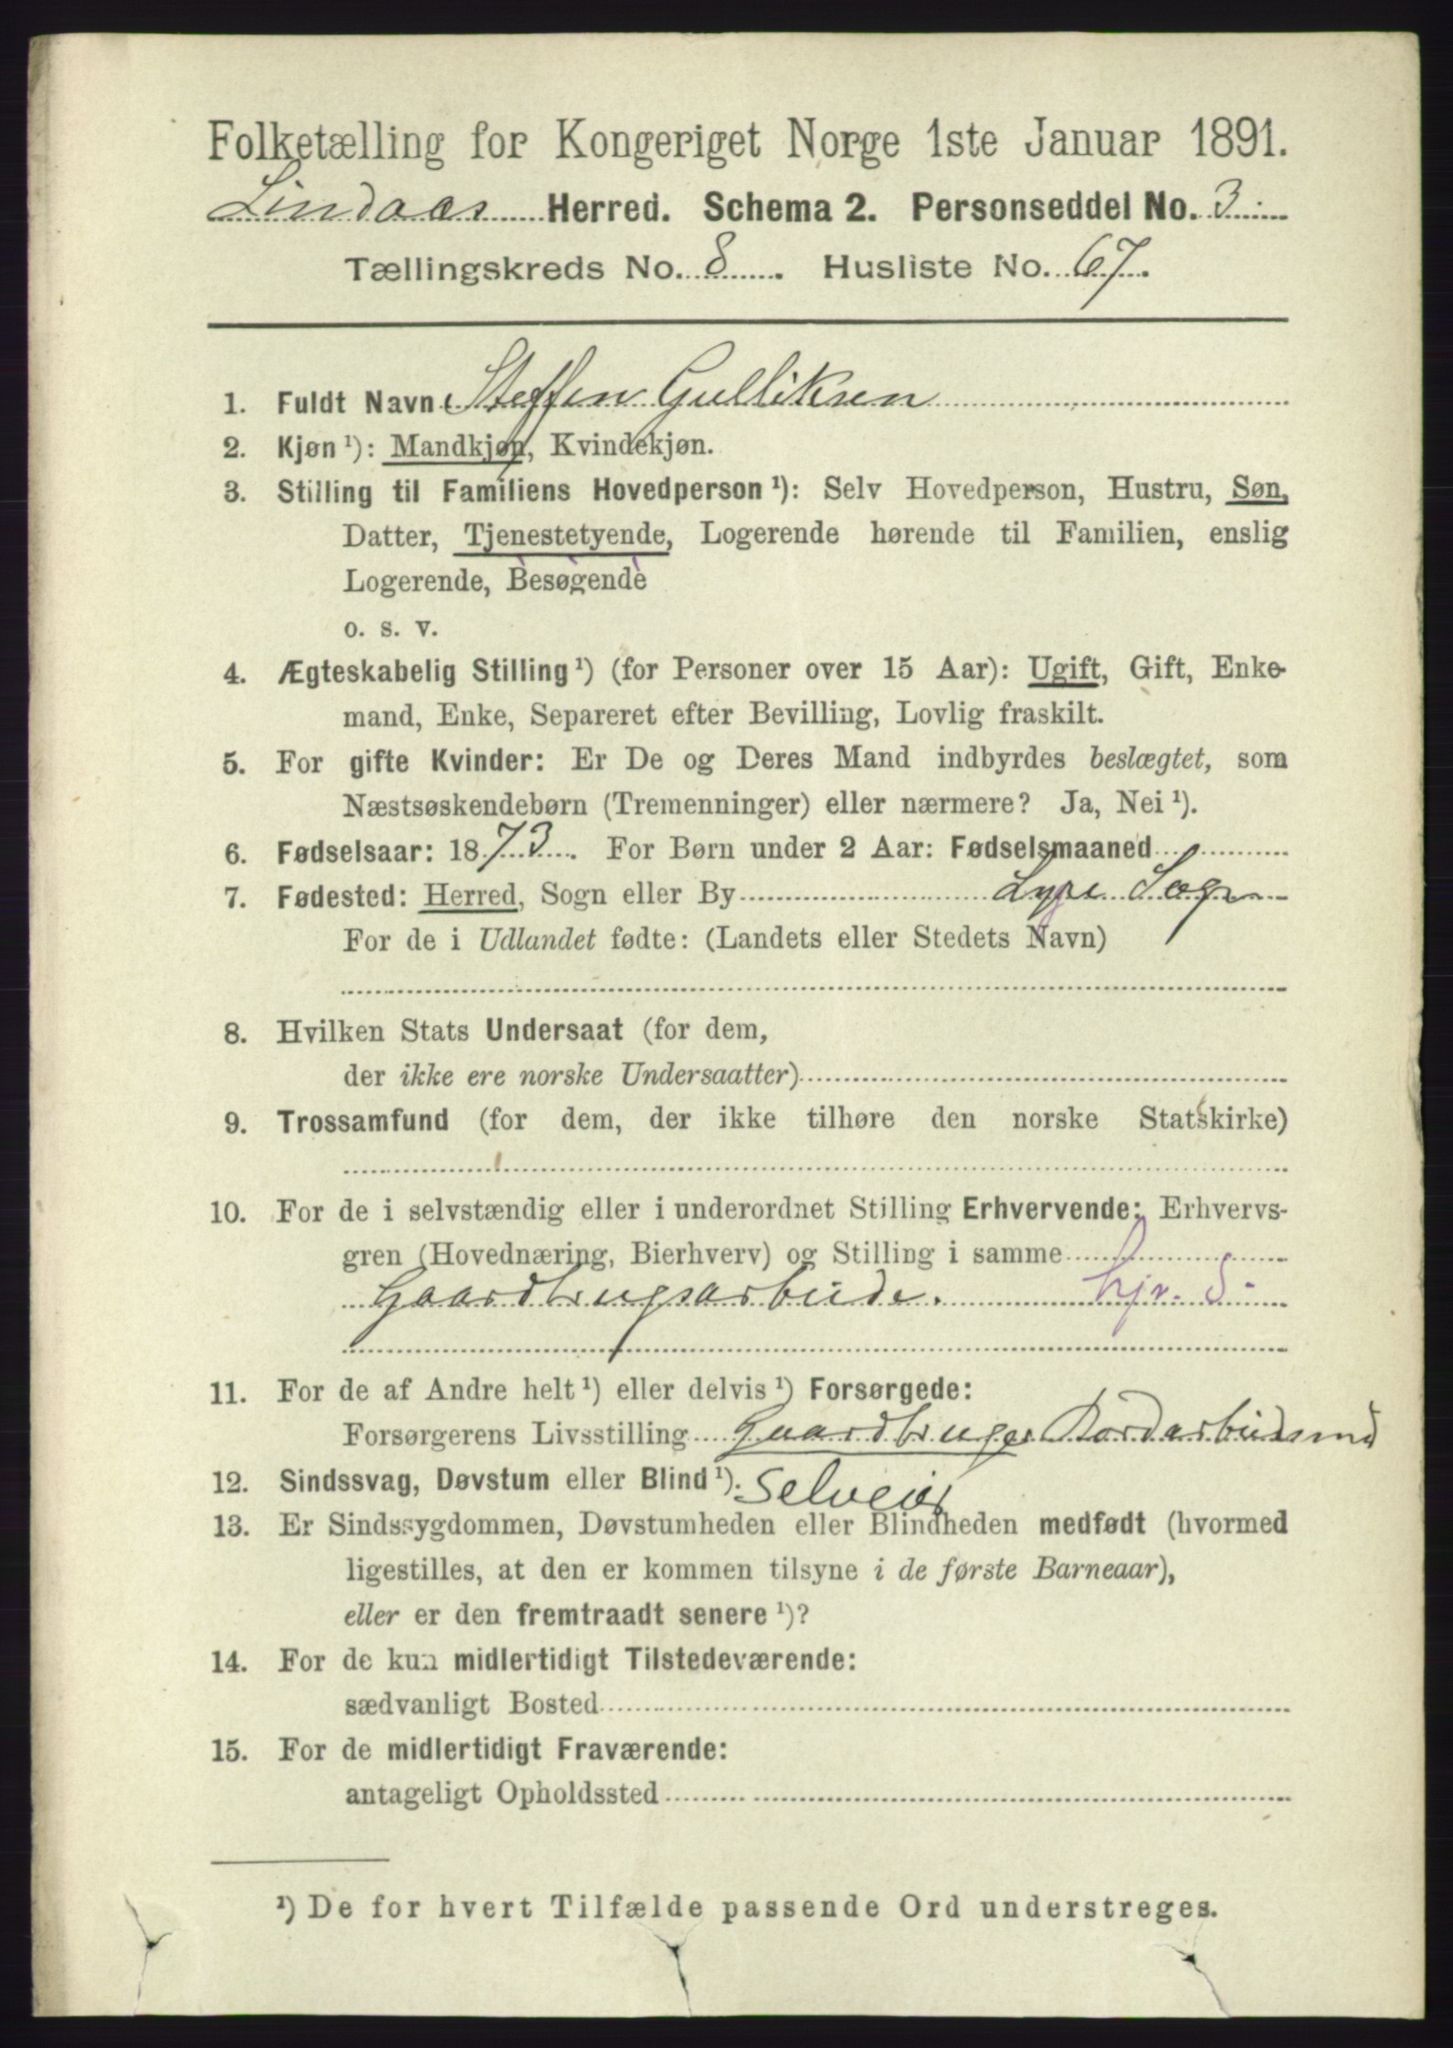 Folketælling for Kongeriget Norge 1ste Januar 1891.
Lindaas Herred. Schema 2. Personseddel No. 3.
Tællingskreds No. 8. Husliste No. 67.
1. Fuldt Navn Steffen Gulliksen
2. Kjøn ¹): Mandkjøn, Kvindekjøn.
3. Stilling til Familiens Hovedperson ¹): Selv Hovedperson, Hustru, Søn,
Datter, Tjenestetyende, Logerende hørende til Familien, enslig
Logerende, Besøgende
o. s. v.
4. Ægteskabelig Stilling ¹) (for Personer over 15 Aar): Ugift, Gift, Enke-
mand, Enke, Separeret efter Bevilling, Lovlig fraskilt.
5. For gifte Kvinder: Er De og Deres Mand indbyrdes beslægtet, som
Næstsøskendebørn (Tremenninger) eller nærmere? Ja, Nei ¹).
6. Fødselsaar: 1873. For Børn under 2 Aar: Fødselsmaaned
7. Fødested: Herred, Sogn eller By Sogn
For de i Udlandet fødte: (Landets eller Stedets Navn)
8. Hvilken Stats Undersaat (for dem,
der ikke ere norske Undersaatter)
9. Trossamfund (for dem, der ikke tilhøre den norske Statskirke)
10. For de i selvstændig eller i underordnet Stilling Erhvervende: Erhvervs-
gren (Hovednæring, Bierhverv) og Stilling i samme
Gaardbrugsarbeide. hjv. S
11. For de af Andre helt ¹) eller delvis ¹) Forsørgede:
Forsørgerens Livsstilling Gaardbruger
12. Sindssvag, Døvstum eller Blind ¹). Selveier
13. Er Sindssygdommen, Døvstumheden eller Blindheden medfødt (hvormed
ligestilles, at den er kommen tilsyne i de første Barneaar),
eller er den fremtraadt senere ¹)?
14. For de kun midlertidigt Tilstedeværende:
sædvanligt Bosted
15. For de midlertidigt Fraværende:
antageligt Opholdssted
¹) De for hvert Tilfælde passende Ord understreges.